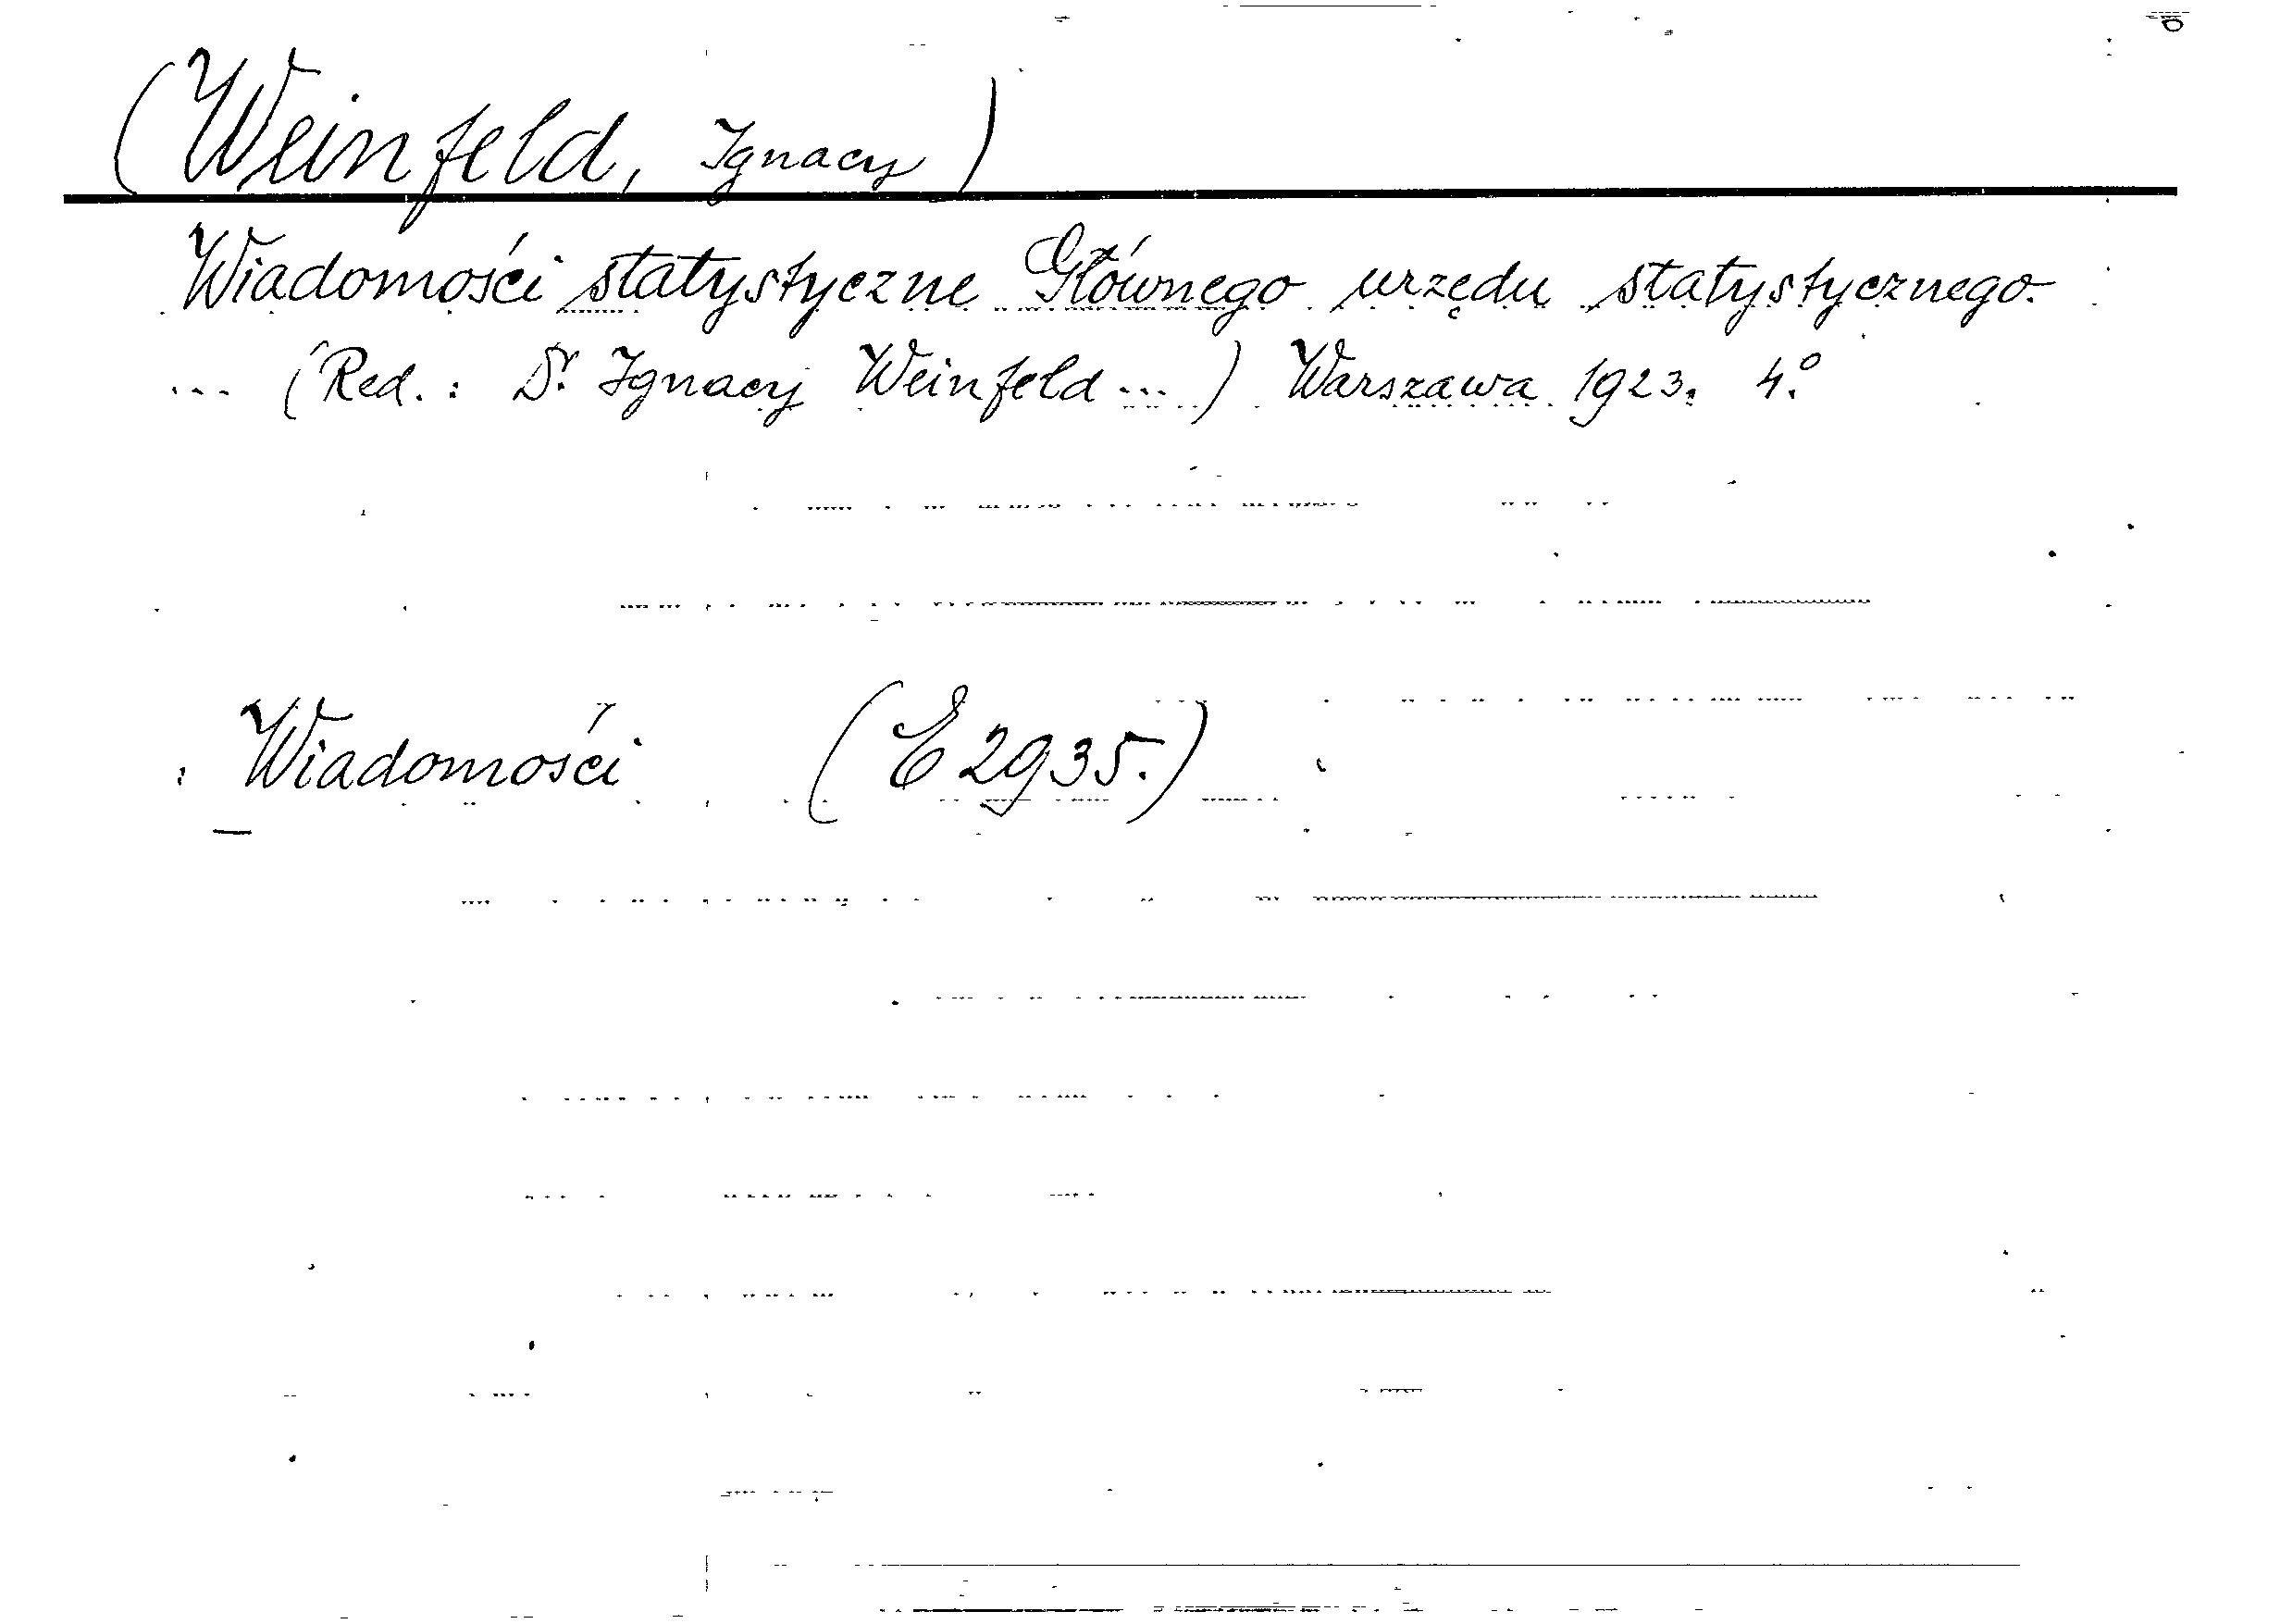 (Weinfeld, Ignacy)
Wiadomości statystyczne Głównego urzędu statystycznego.
... (Red.: Dr. Ignacy Weinfeld ...) Warszawa 1923. 4.°
Wiadomości (E 2935.)